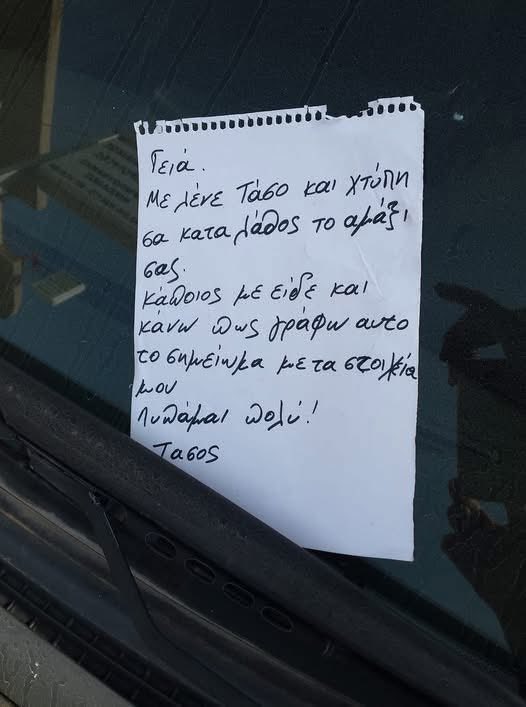 Γειά.
Με λένε Τάσο και χτύπη
σα κατα λάθος το αμάξι
σας.
κάποιος με είδε και
κάνω πως γράφω αυτο
το σημείωμα με τα στοιχεία
μου
Λυπάμαι πολύ!
Τασος